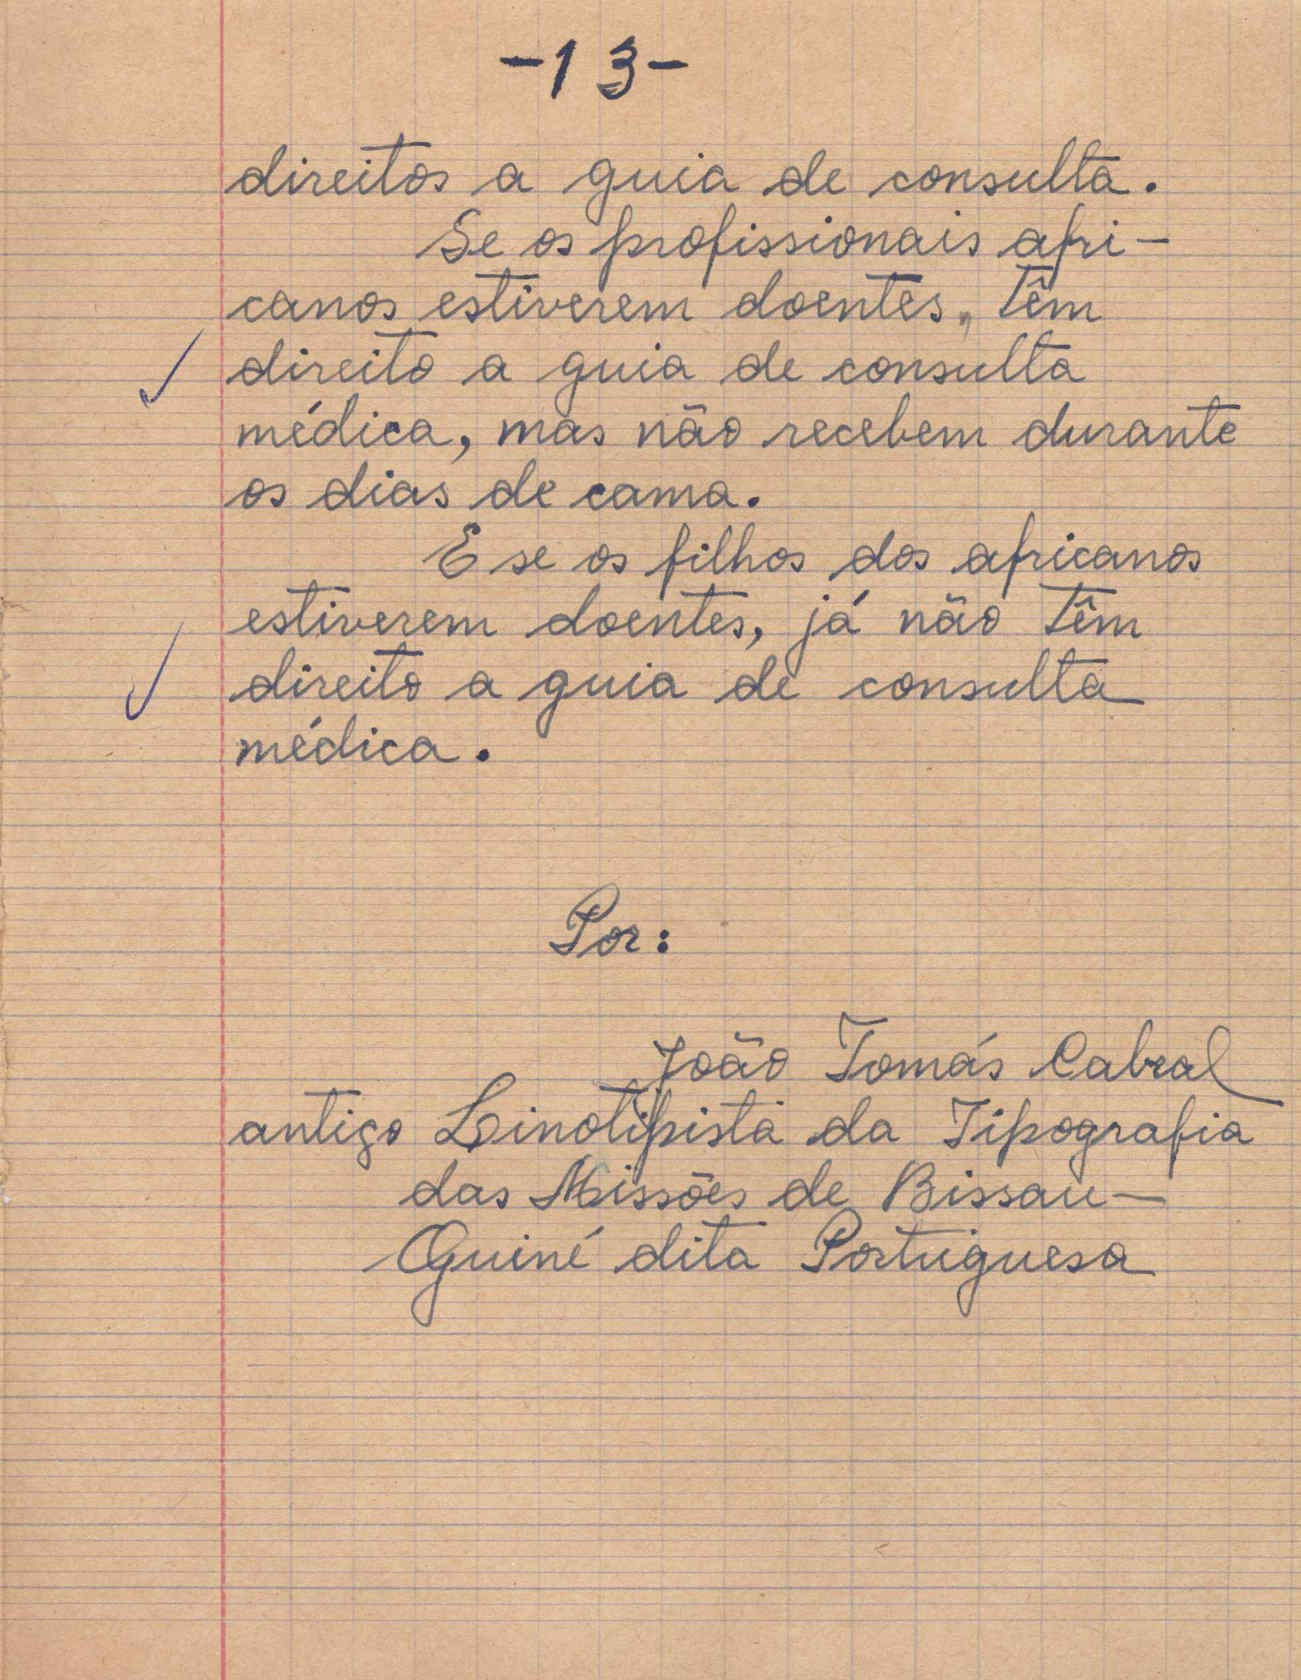 -13-
direitos a guia de consulta.
Se os profissionais afri-
canos estiverem doentes, têm
direito a guia de consulta
médica, mas não recebem durante
os dias de cama.
E se os filhos dos africanos
estiverem doentes, já não têm
direito a guia de consulta
médica.
Por:
João Tomás Cabral
antigo Linotipista da Tipografia
das Missões de Bissau-
Guiné dita Portuguesa